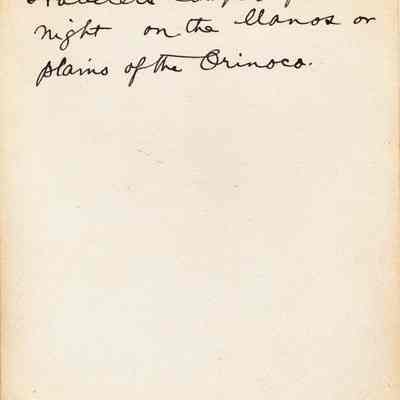 Travelers
night on the llanos or
plains of the Orinoco.